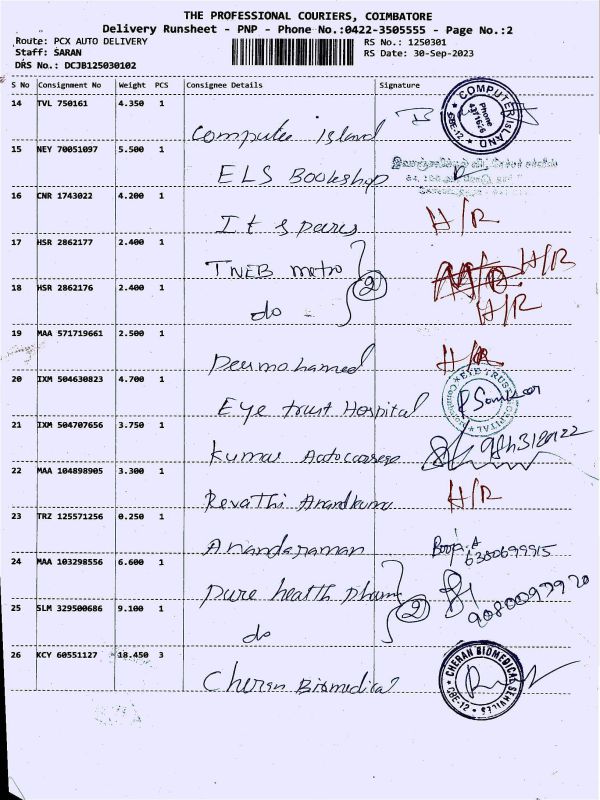 THE PROFESSIONAL COURIERS, COIMBATORE
Delivery Runsheet - PNP - Phone No.:0422-3505555 - Page No.:2
Route: PCX AUTO DELIVERY
RS No.: 1250301
Staff: SARAN
RS Date: 30-Sep-2023
DRS No.: DCJB125030102
S No Consignment No Weight PCS Consignee Details Signature
14 TVL 750161 4.350 1
COMPUTER ISLAND CBE-12 Phone 4371626
Computer island
15 NEY 70051097 5.500 1
ELS Bookshop
16 CNR 1743022 4.200 1
It spares H/R
17 HSR 2862177 2.400 1
TNEB metro 2 H/R
18 HSR 2862176 2.400 1
do H/R
19 MAA 571719661 2.500 1
Peermohamed H/R
20 IXM 504630823 4.700 1
EYE TRUST
Eye trust Hospital
21 IXM 504707656 3.750 1
Kumar
22 MAA 104898905 3.300 1
Revathi Anandkumar H/R
23 TRZ 125571256 0.250 1
Anandaraman
6380699915
24 MAA 103298556 6.600 1
Pure health Pharm 2
25 SLM 329500686 9.100 1
do
26 KCY 60551127 18.450 3
CHERAN BIOMEDICAL SERVICES CBE-12
Cheran Biomedical